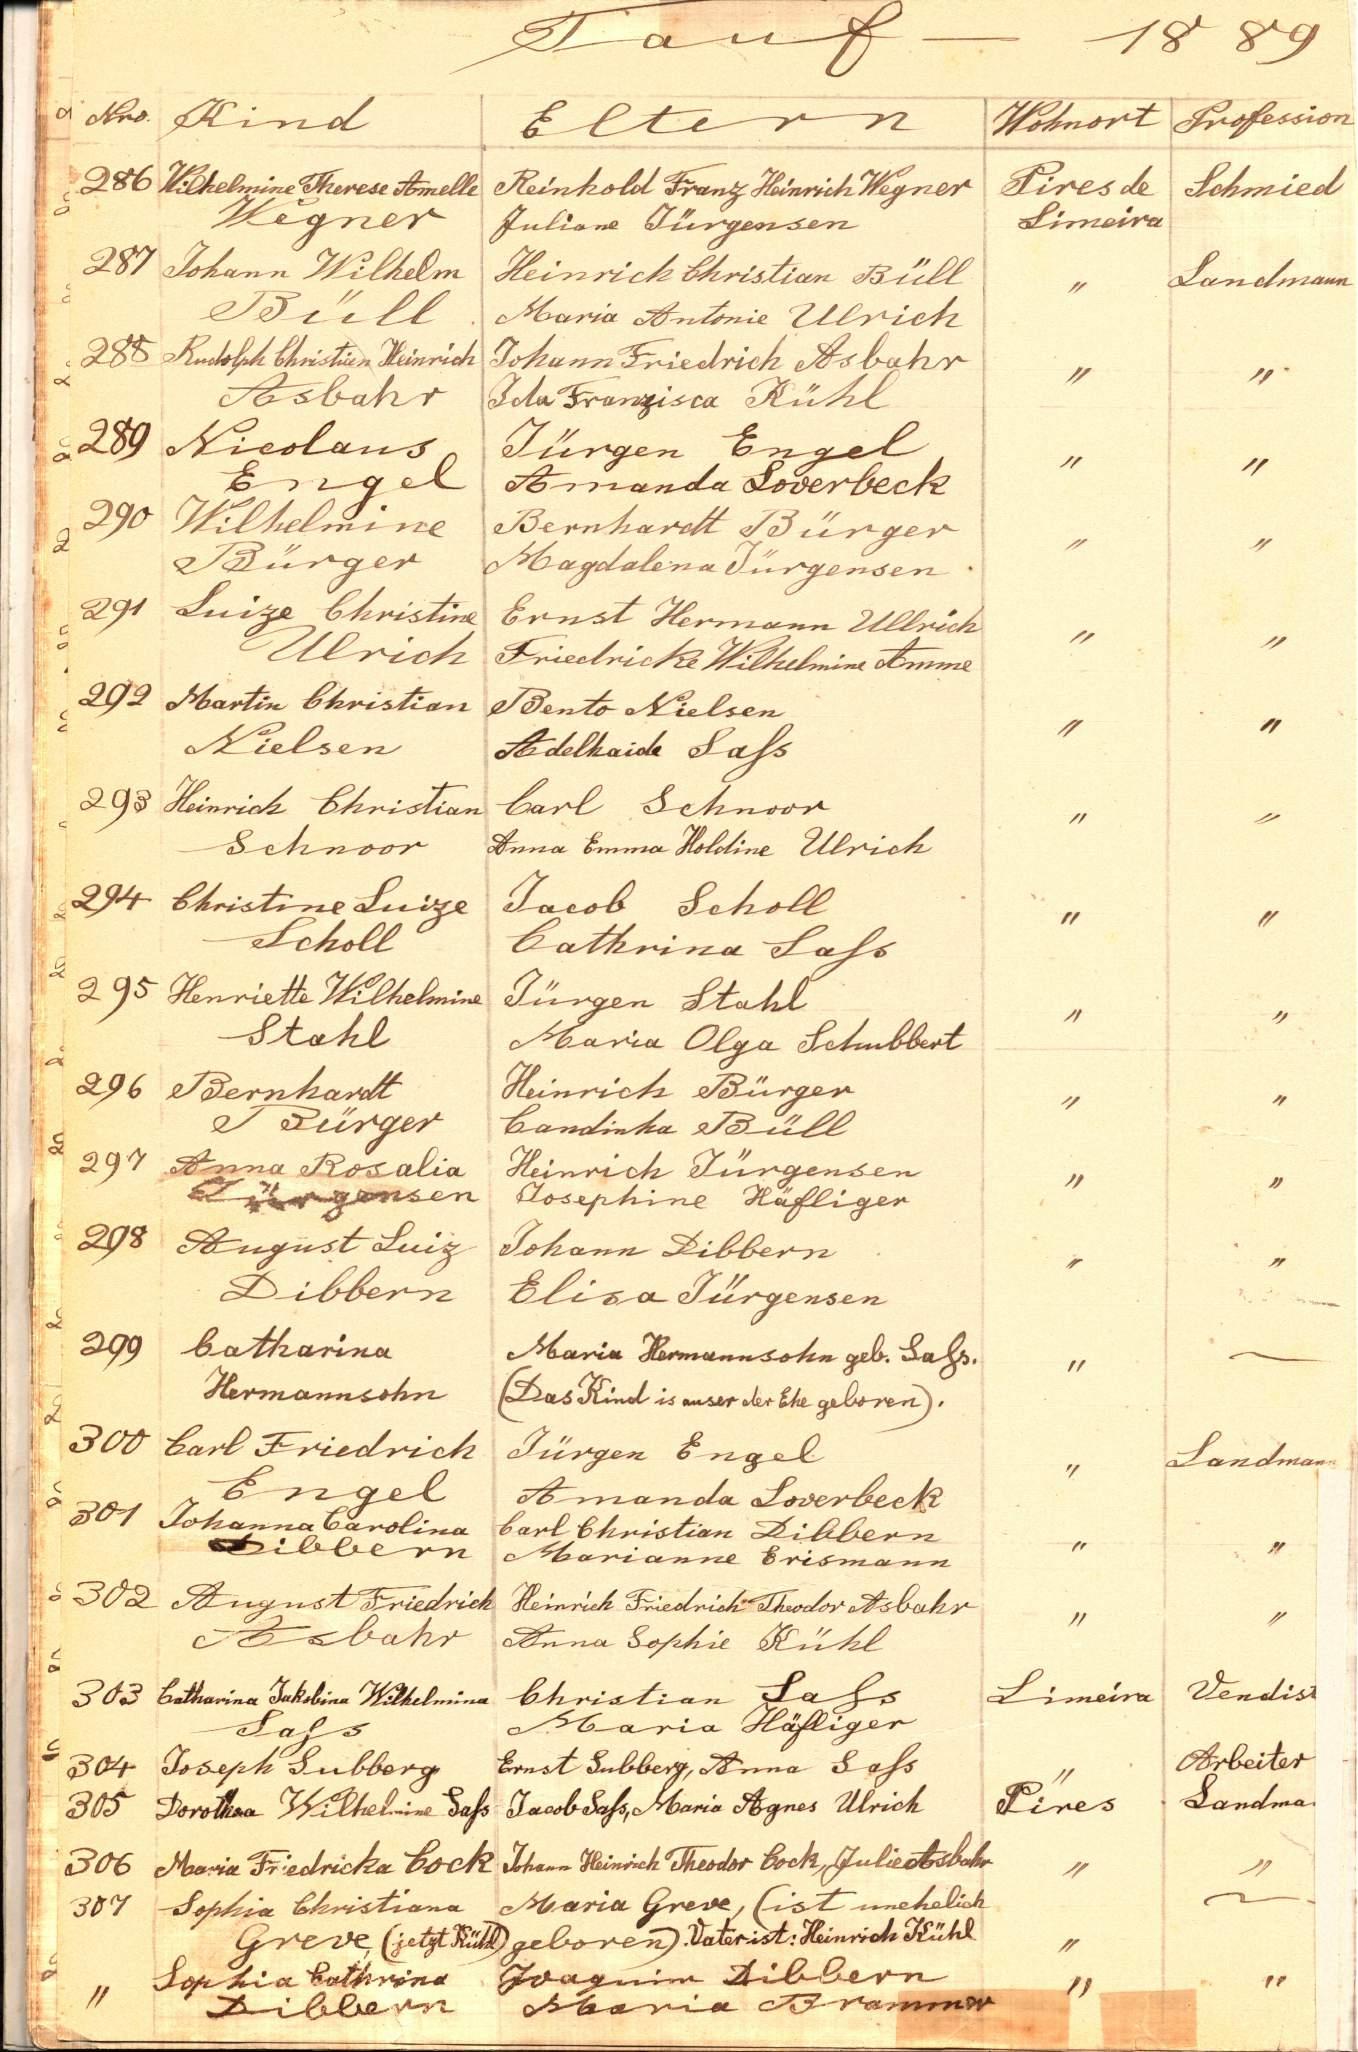 Tauf — 1889
Nro. Kind Eltern Wohnort Profession
286 Wilhelmine Therese Amelle Reinhold Franz Heinrich Wegner Pires de Schmied
Wegner Juliane Jürgensen Limeira
287 Johann Wilhelm Heinrich Christian Büll " Landmann
Büll Maria Antonie Ulrich
288 Rudolph Christian Heinrich Johann Friedrich Asbahr " "
Asbahr Ida Franzisca Kühl
289 Nicolaus Jürgen Engel " "
Engel Amanda Loverbeck
290 Wilhelmine Bernhardt Bürger " "
Bürger Magdalena Jürgensen
291 Luize Christine Ernst Hermann Ullrich " "
Ulrich Friedricke Wilhelmine Amme
292 Martin Christian Bento Nielsen " "
Nielsen Adelhaide Saſs
293 Heinrich Christian Carl Schnoor " "
Schnoor Anna Emma Holdine Ulrich
294 Christine Luize Jacob Scholl " "
Scholl Cathrina Saſs
295 Henriette Wilhelmine Jürgen Stahl " "
Stahl Maria Olga Schubbert
296 Bernhardt Heinrich Bürger " "
Bürger Candinha Büll
297 Anna Rosalia Heinrich Jürgensen " "
Jürgensen Josephine Häfliger
298 August Luiz Johann Dibbern " "
Dibbern Elisa Jürgensen
299 Catharina Maria Hermannsohn geb. Saſs. " —
Hermannsohn (Das Kind is auser der Ehe geboren).
300 Carl Friedrich Jürgen Engel " Landmann
Engel Amanda Loverbeck
301 Johanna Carolina Carl Christian Dibbern " "
Dibbern Marianne Erismann
302 August Friedrich Heinrich Friedrich Theodor Asbahr " "
Asbahr Anna Sophie Kühl
303 Catharina Jakobina Wilhelmina Christian Saſs Limeira Vendist
Saſs Maria Häfliger
304 Joseph Lubberg Ernst Lubberg, Anna Saſs " Arbeiter
305 Dorothea Wilhelmine Saſs Jacob Saſs, Maria Agnes Ulrich Pires Landma
306 Maria Friedricka Cock Johann Heinrich Theodor Cock, Julie Asbahr " "
307 Sophia Christiana Maria Greve, (ist unehelich —
Greve, (jetzt Kühl) geboren). Vater ist: Heinrich Kühl "
" Sophia Cathrina Joaquim Dibbern " "
Dibbern Maria Brammer